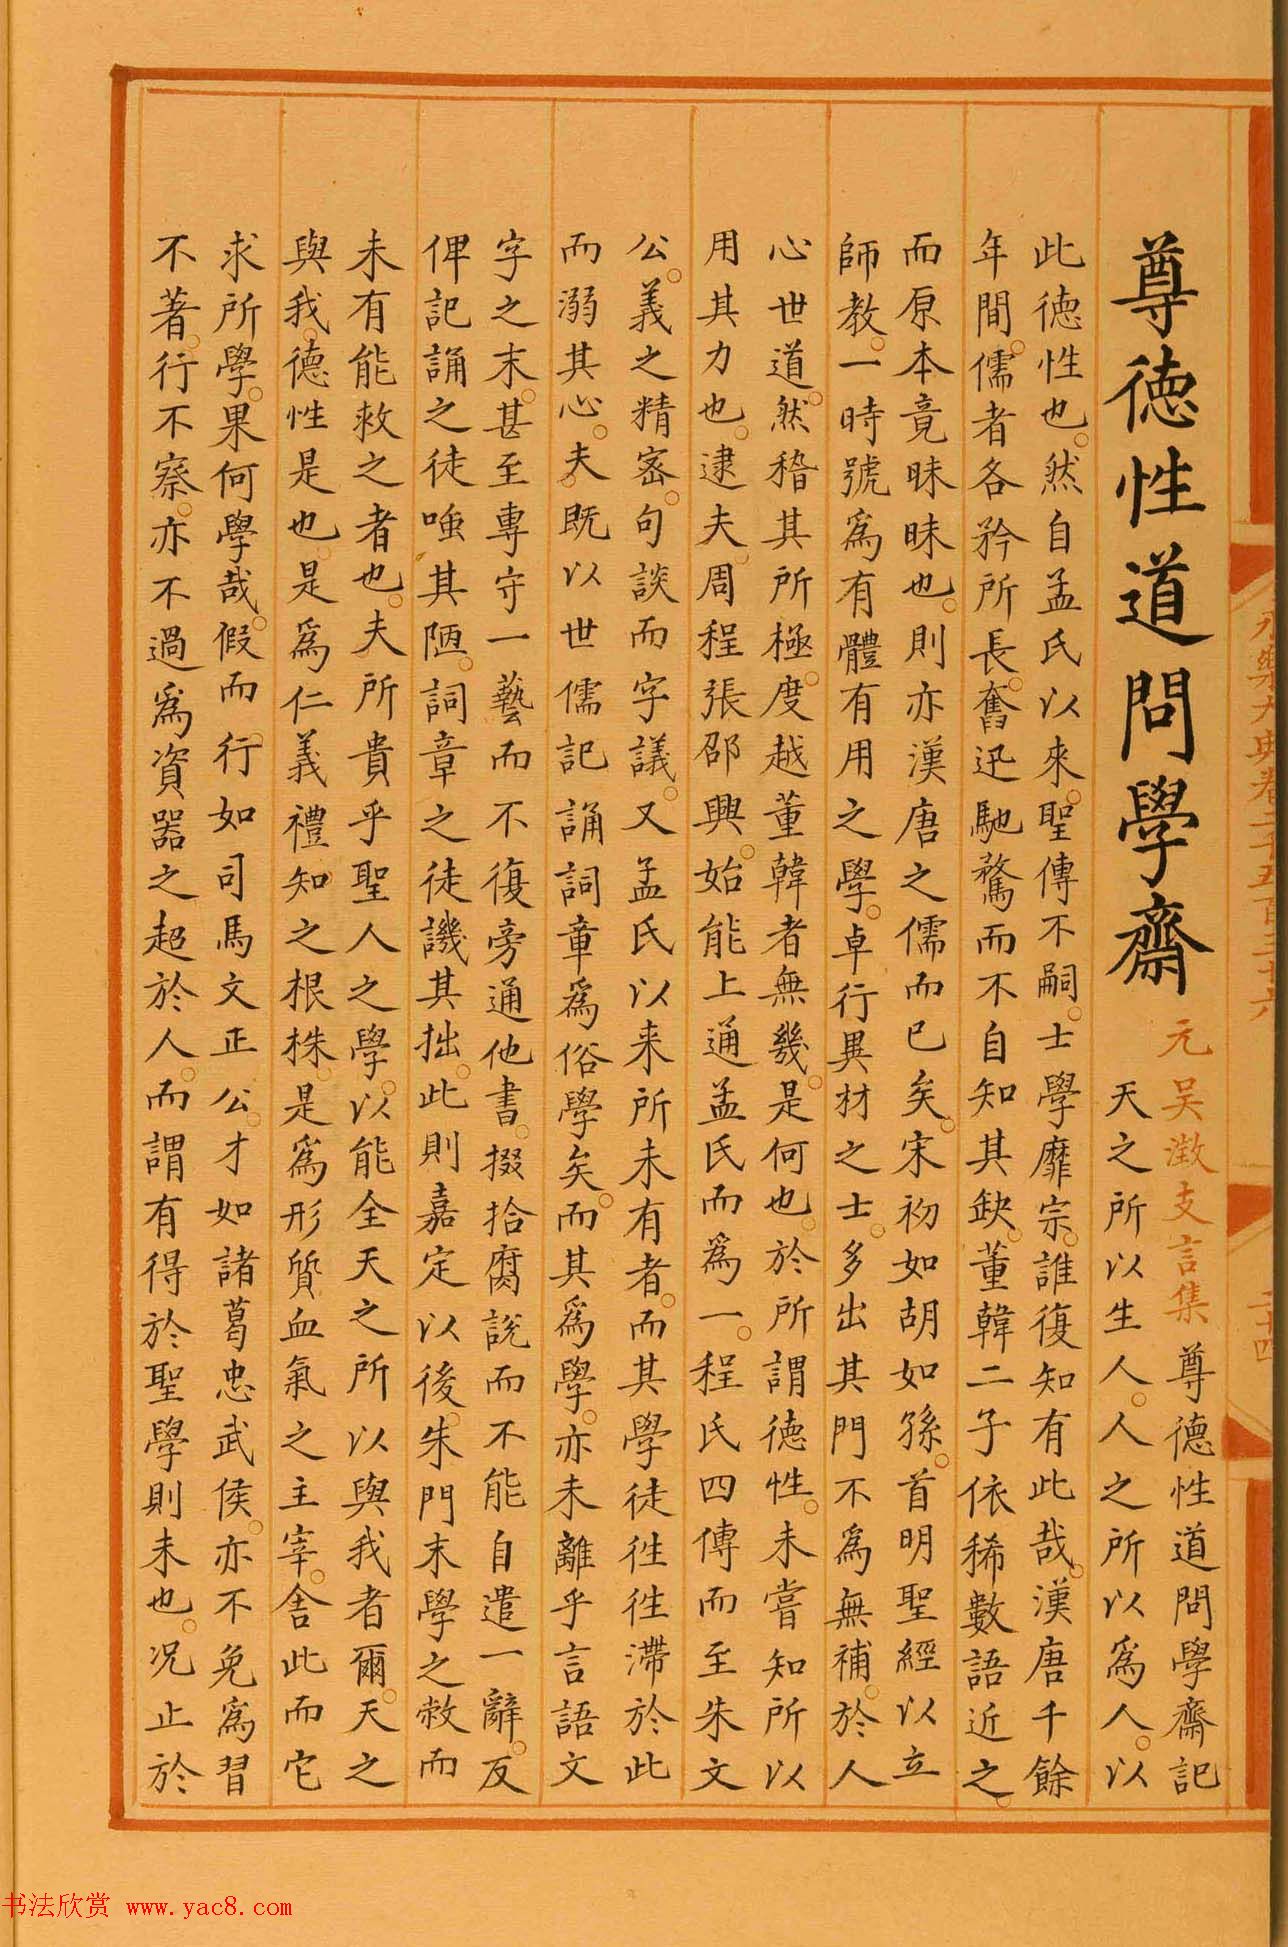 尊德性道問學齋
元吴澂支言集
尊德性道問學齋記
天之所以生人。人之所以爲人。以
此德性也。然自孟氏以來。聖傳不嗣。士學靡宗。誰復知有此哉。漢唐千餘
年間。儒者各矜所長。奮迅馳騖而不自知其缺。董韓二子依稀數語近之。
而原本竟昧昧也。則亦漢唐之儒而已矣。宋初如胡如孫。首明聖經以立
師教。一時號爲有體有用之學。卓行異材之士。多出其門不爲無補。於人
心世道。然稽其所極。度越董韓者無幾。是何也。於所謂德性。未嘗知所以
用其力也。逮夫。周程張邵興。始能上通孟氏而爲一。程氏四傳而至朱文
公。義之精密。句談而字議。又孟氏以来所未有者。而其學徒徃徃滯於此
而溺其心。夫。既以世儒記誦詞章爲俗學矣。而其爲學。亦未離乎言語文
字之末。甚至專守一藝而不復旁通他書。掇拾腐說而不能自遣一辭。反
俾記誦之徒嗤其陋。詞章之徒譏其拙。此則嘉定以後。朱門末學之敝而
未有能救之者也。夫所貴乎聖人之學。以能全天之所以與我者爾。天之
與我。德性是也。是爲仁義禮知之根株。是爲形質血氣之主宰。舍此而它
求所學。果何學哉。假而行如司馬文正公。才如諸葛忠武侯。亦不免爲習
不著。行不察。亦不過爲資器之超於人。而謂有得於聖學則未也。况止於
永樂大典卷二千五百三十六
二十四
书法欣赏 www.yac8.com